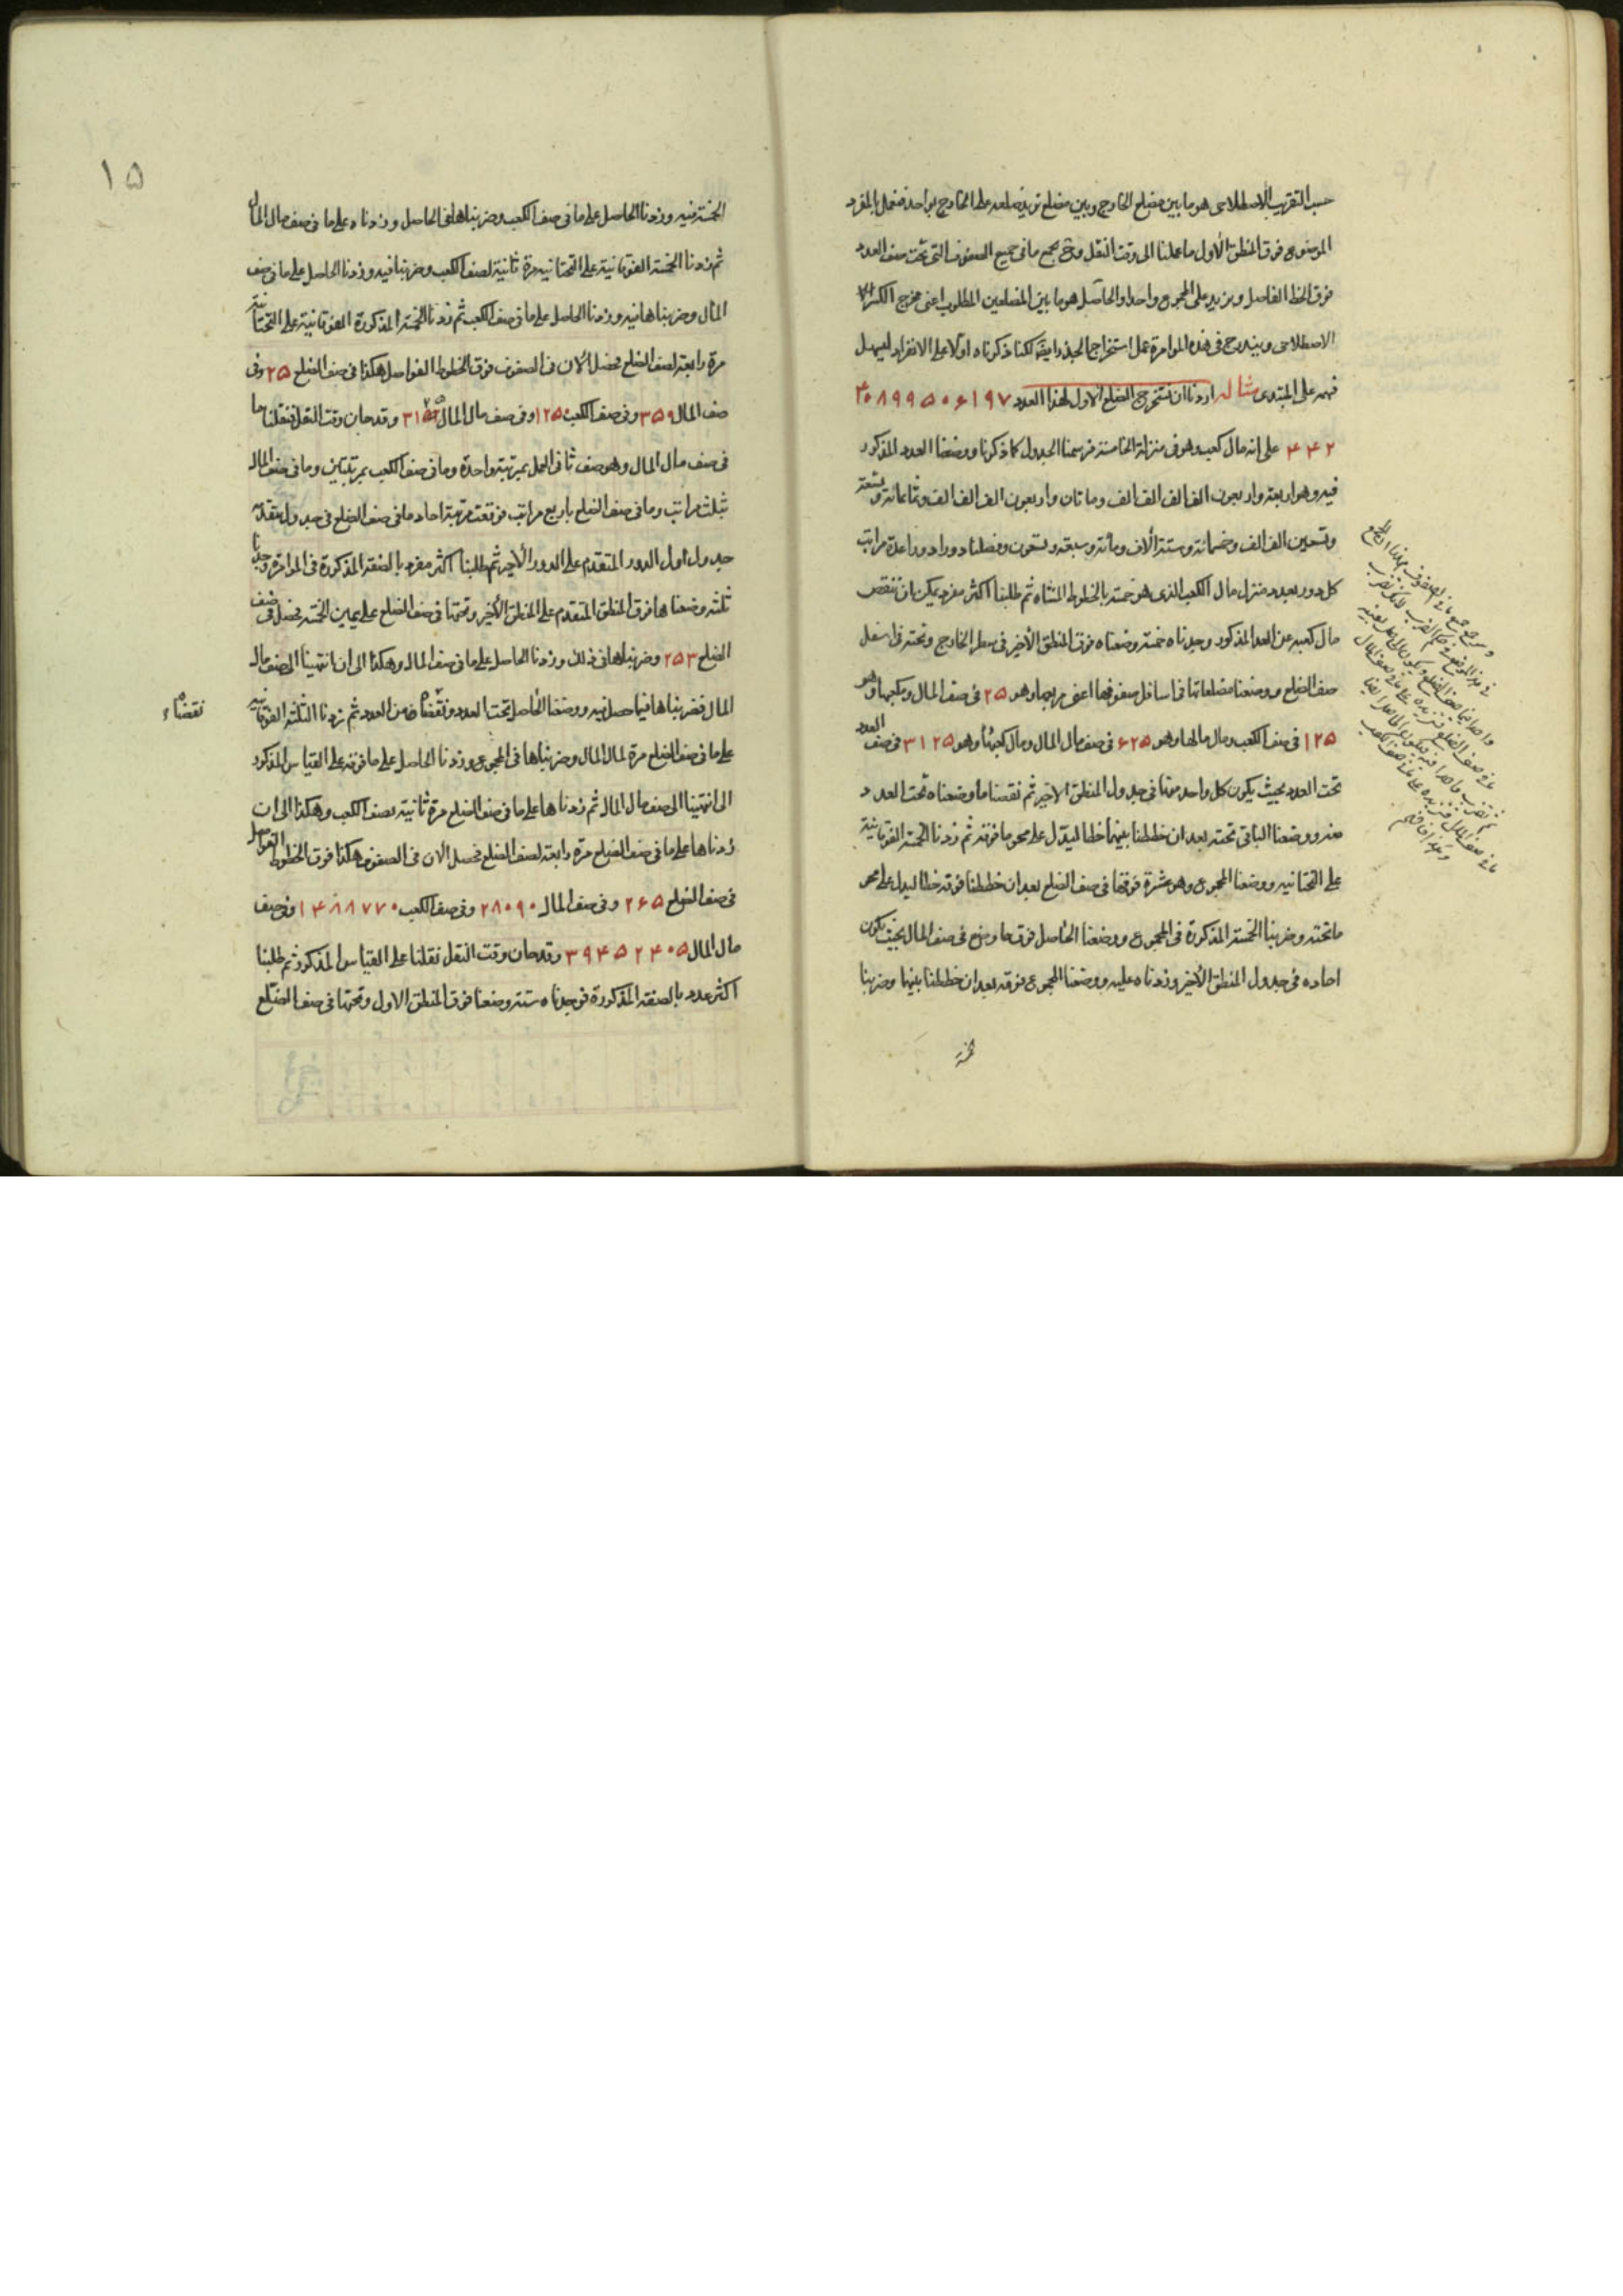 حسب التقريب الاصطلاحى هو ما بين مضلع الخارج وبين مضلع نزيد ضلعه على الخارج بواحد فنعمل بالمفرد
الموضوع فوق المنطق الأول ما عملنا الى وقت النقل وح نجمع ما فى جميع الصفوف التى تحت صف العدد
فوق الخط الفاصل ونزيد على المجموع واحدا والحاصل هو ما بين المضلعين المطلوب اعنى مخرج الكسر
الاصطلاحى ويندرج فى هذه المؤامرة عمل استخراج الجذر ايضا لكنا ذكرناه اولا على الانفراد ليسهل
فهمه على المبتدى مثاله اردنا ان نستخرج الضلع الاول لهذا العدد ۴۰۸۹۹۵۰۶۱۹۷
۴۴۲ على انه مال كعب وهو فى منزلة الخامسة فرسمنا الجدول كما ذكرنا ووضعنا العدد المذكور
فيه وهو اربعة واربعون الف الف الف الف ومائتان واربعون الف الف الف وثمانمائة وتسعة
وتسعين الف الف وخمسمائة وستة آلاف ومائة وسبعة وتسعون وفصلنا دورا دورا عدة مراتب
كل دور بعدد منزل مال الكعب الذى هو خمسة بالخطوط المثناه ثم طلبنا اكثر مفرد يمكن ان ننقص
مال كعبه عن العدد المذكور وجدناه خمسة وضعناه فوق المنطق الأخير فى سطر الخارج وتحته فى اسفل
صف الضلع ووضعنا مضلعاتها فى اسافل صفوفها اعنى مربعها وهو ۲۵ فى صف المال ومكعبها وهو
۱۲۵ فى صف الكعب ومال مالها وهو ۶۲۵ فى صف مال المال ومال كعبها وهو ۳۱۲۵ فى صف العدد
تحت العدد بحيث يكون كل واحد منها فى جدول المنطق الاخير ثم نقصنا ما وضعناه تحت العدد
منه ووضعنا الباقى تحته بعد ان خططنا بينهما خطا ليدل على محو ما فوقه ثم زدنا الخمسة الفوقانية
على التحتانية ووضعنا المجموع وهو عشرة فوقها فى صف الضلع بعد ان خططنا فوقه خطا ليدل على محو
ما تحته وضربنا الخمسة المذكورة فى المجموع ووضعنا الحاصل فوق ما وضع فى صف المال بحيث يكون
احاده فى جدول المنطق الأخير وزدناه عليه ووضعنا المجموع فوقه بعد ان خططنا بينهما وضربنا
۱۵
الخمسة فيه وزدنا الحاصل على ما فى صف الكعب وضربناها فى الحاصل وزدناه على ما فى صف مال المال
ثم زدنا الخمسة الفوقانية على التحتانية مرة ثانية لصف الكعب وضربنا فيه وزدنا الحاصل على ما فى صف
المال وضربناها فيه وزدنا الحاصل على ما فى صف الكعب ثم زدنا الخمسة المذكورة الفوقانية على التحتانية
مرة رابعة لصف الضلع فحصل الآن فى الصفوف فوق الخطوط الفواصل هكذا فى صف الضلع ۲۵ وفى
صف المال ۳۵۹ وفى صف الكعب ۱۲۵ وفى صف مال المال وقد حان وقت النقل فنقلنا ما
فى صف مال المال وهو صف ثانى العمل بمرتبة واحدة وما فى صف الكعب بمرتبتين وما فى صف المال
بثلث مراتب وما فى صف الضلع باربع مراتب فوقعت مرتبة احاد ما فى صف الضلع فى جدول يتقدم
جدول اول الدور المتقدم على الدور الأخير ثم طلبنا اكثر مفرد بالصفة المذكورة فى المؤامرة وجدنا
ثلثة وضعناها فوق المنطق المتقدم على المنطق الأخير وتحتها فى صف الضلع على يمين الخمسة يحصل فى صف
الضلع ۲۵۳ وضربناها فى ذلك وزدنا الحاصل على ما فى صف المال وهكذا الى ان انتهينا الى صف مال
المال فضربناها فيما حصل فيه ووضعنا الحاصل تحت العدد ونقصناه من العدد ثم زدنا الثلثة الفوقانية
على ما فى صف الضلع مرة لمال المال وضربناها فى المجموع وزدنا الحاصل على ما فوقه على القياس المذكور
الى انتهينا الى صف مال المال ثم زدناها على ما فى صف الضلع مرة ثانية لصف الكعب وهكذا الى ان
زدناها على ما فى صف الضلع مرة رابعة لصف الضلع فحصل الآن فى الصفوف هكذا فوق الخطوط الفواصل
فى صف الضلع ۲۶۵ وفى صف المال ۲۸۰۹۰ وفى صف الكعب ۱۴۸۸۷۷۰ وفى صف
مال المال ۳۹۴۵۲۴۰۵ وقد حان وقت النقل نقلنا على القياس المذكور ثم طلبنا
اكثر عدد بالصفة المذكورة فوجدناه ستة وضعنا فوق المنطق الاول وتحتها فى صف الضلع
نقصناه